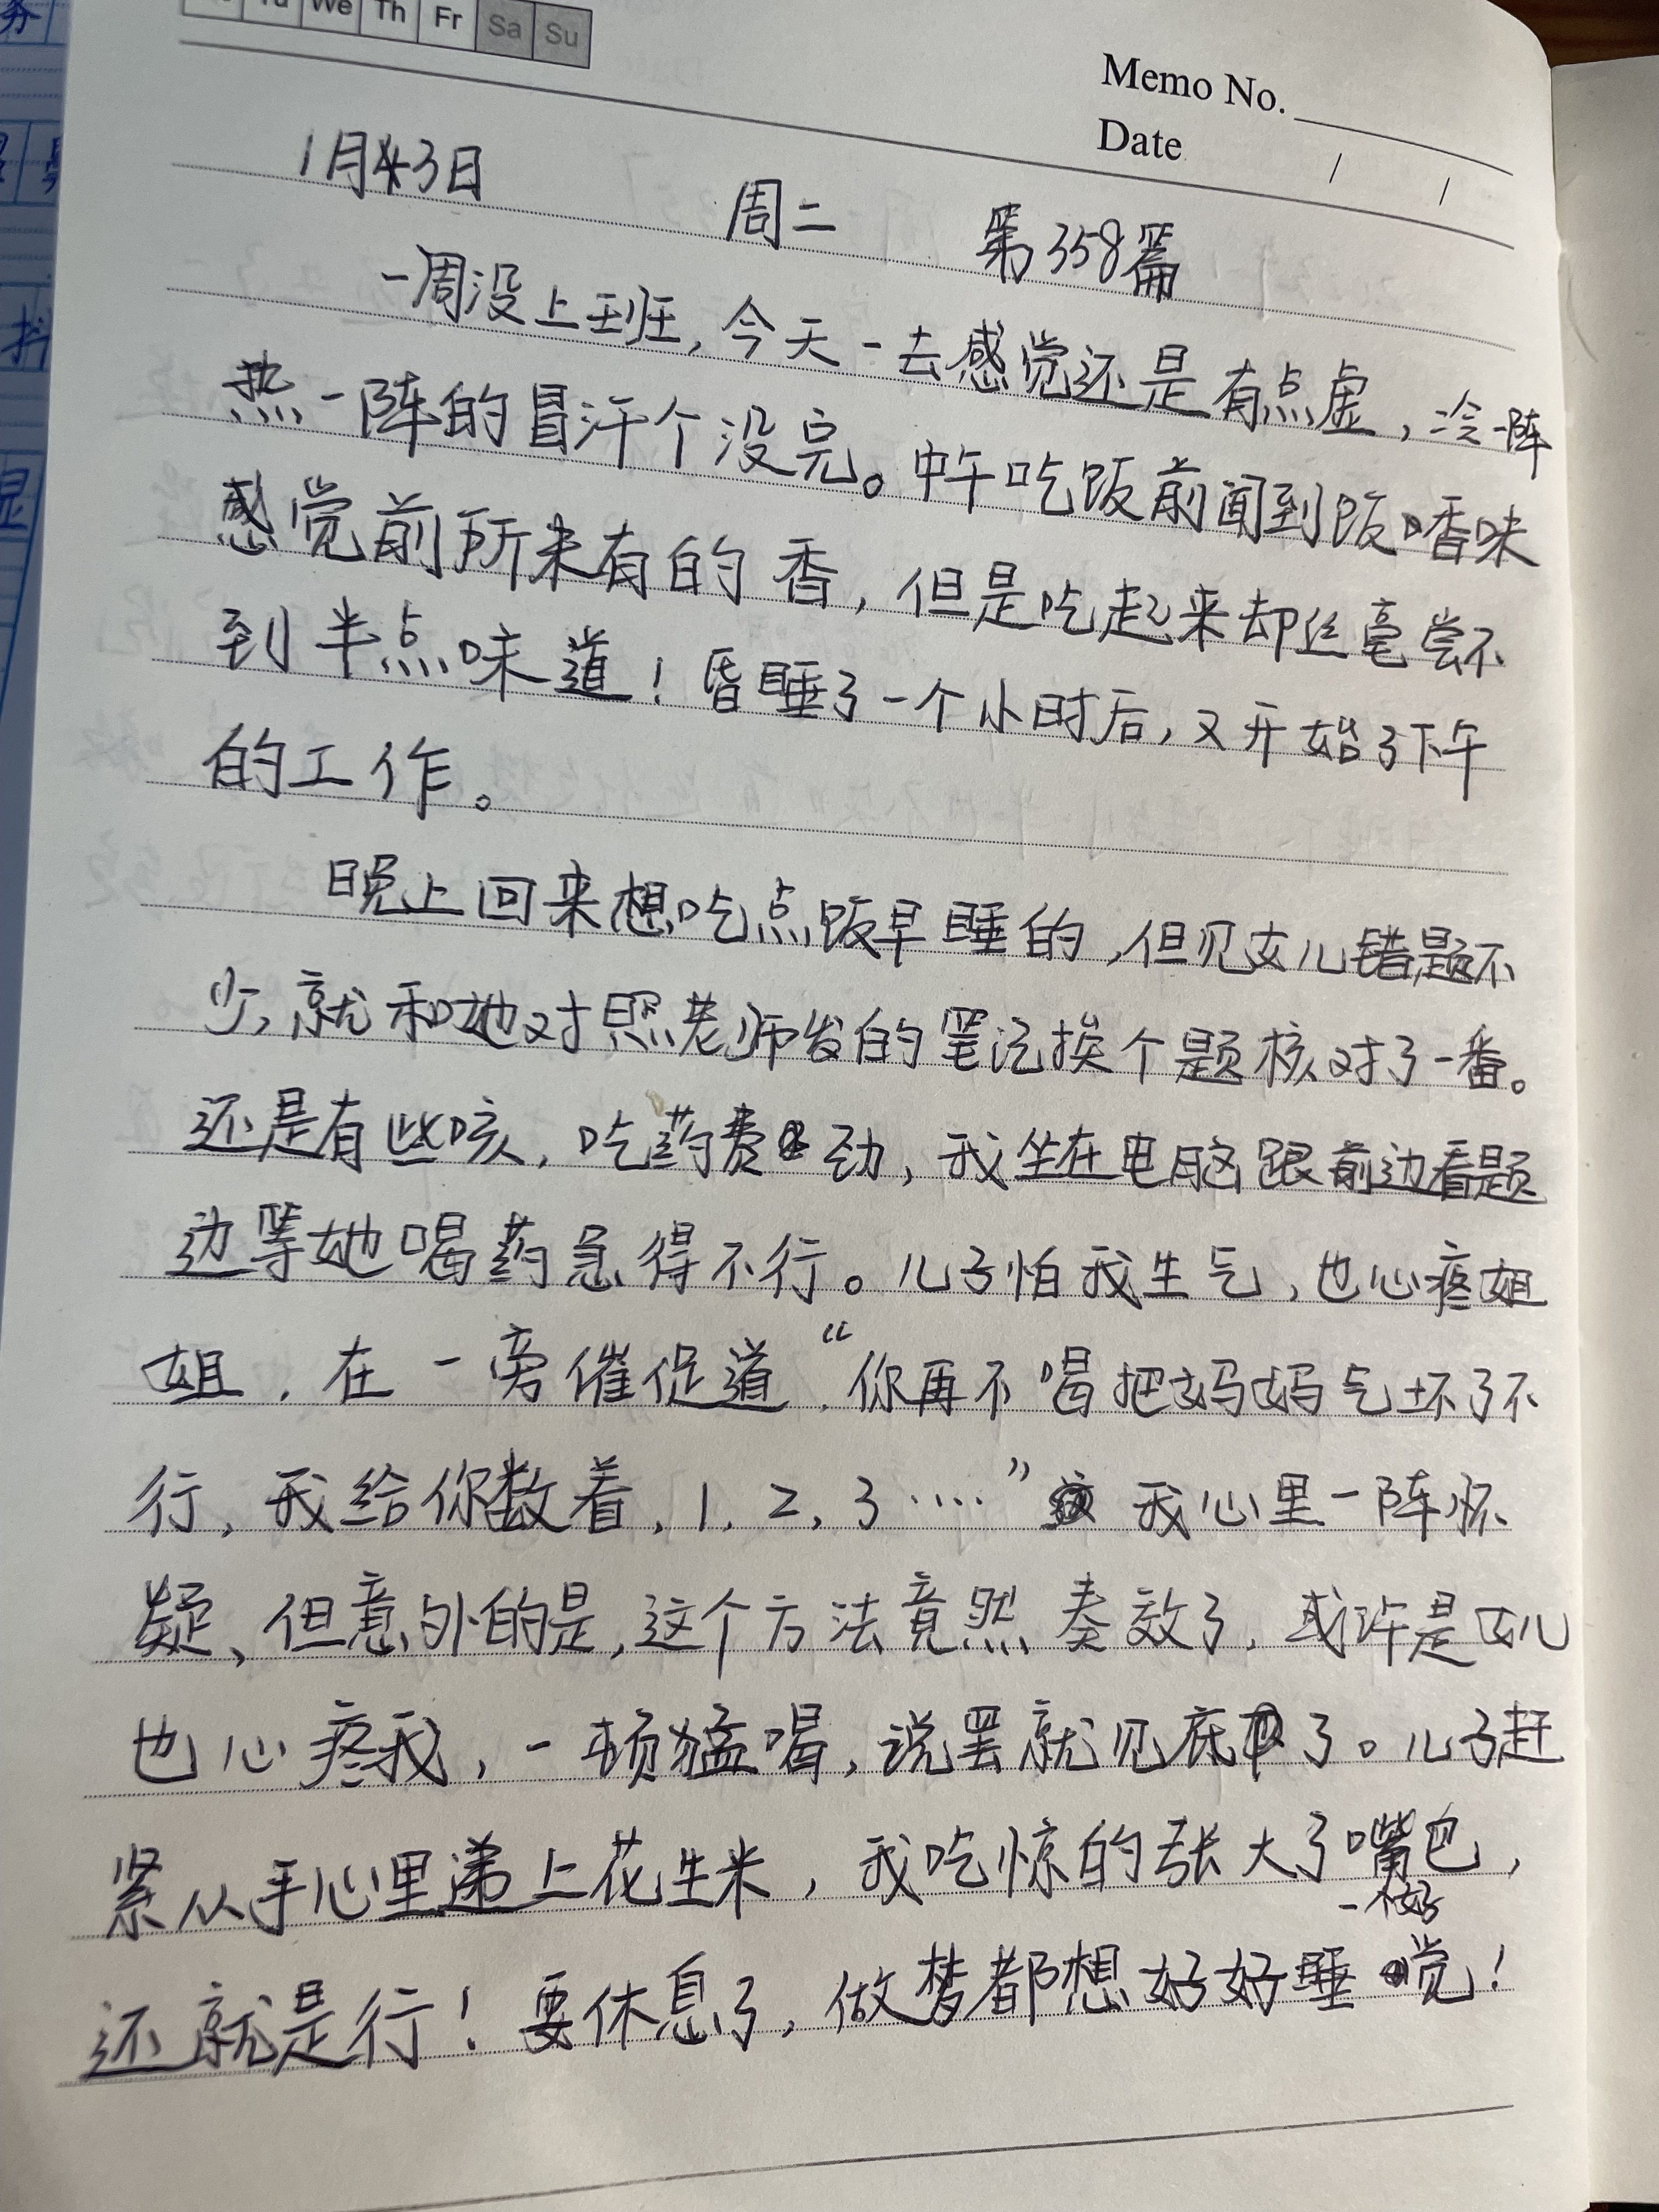 We Th Fr Sa Su
Memo No.
Date / /
1月3日 周二 第358篇
一周没上班,今天一去感觉还是有点虚,冷一阵
热一阵的冒汗个没完。中午吃饭前闻到饭香味
感觉前所未有的香,但是吃起来却丝毫尝不
到半点味道!昏睡了一个小时后,又开始了下午
的工作。
晚上回来想吃点饭早睡的,但见女儿错题不
少,就和她对照老师发的笔记挨个题核对了一番。
还是有些咳,吃药费劲,我坐在电脑跟前边看题
边等她喝药急得不行。儿子怕我生气,也心疼姐
姐,在一旁催促道,“你再不喝把妈妈气坏了不
行,我给你数着,1,2,3····”我心里一阵怀
疑、但意外的是,这个方法竟然奏效了,或许是女儿
也心疼我,一顿猛喝,说罢就见底了。儿子赶
紧从手心里递上花生米,我吃惊的张大了嘴巴,
还就是行!要休息了,做梦都想好好睡一个好觉!